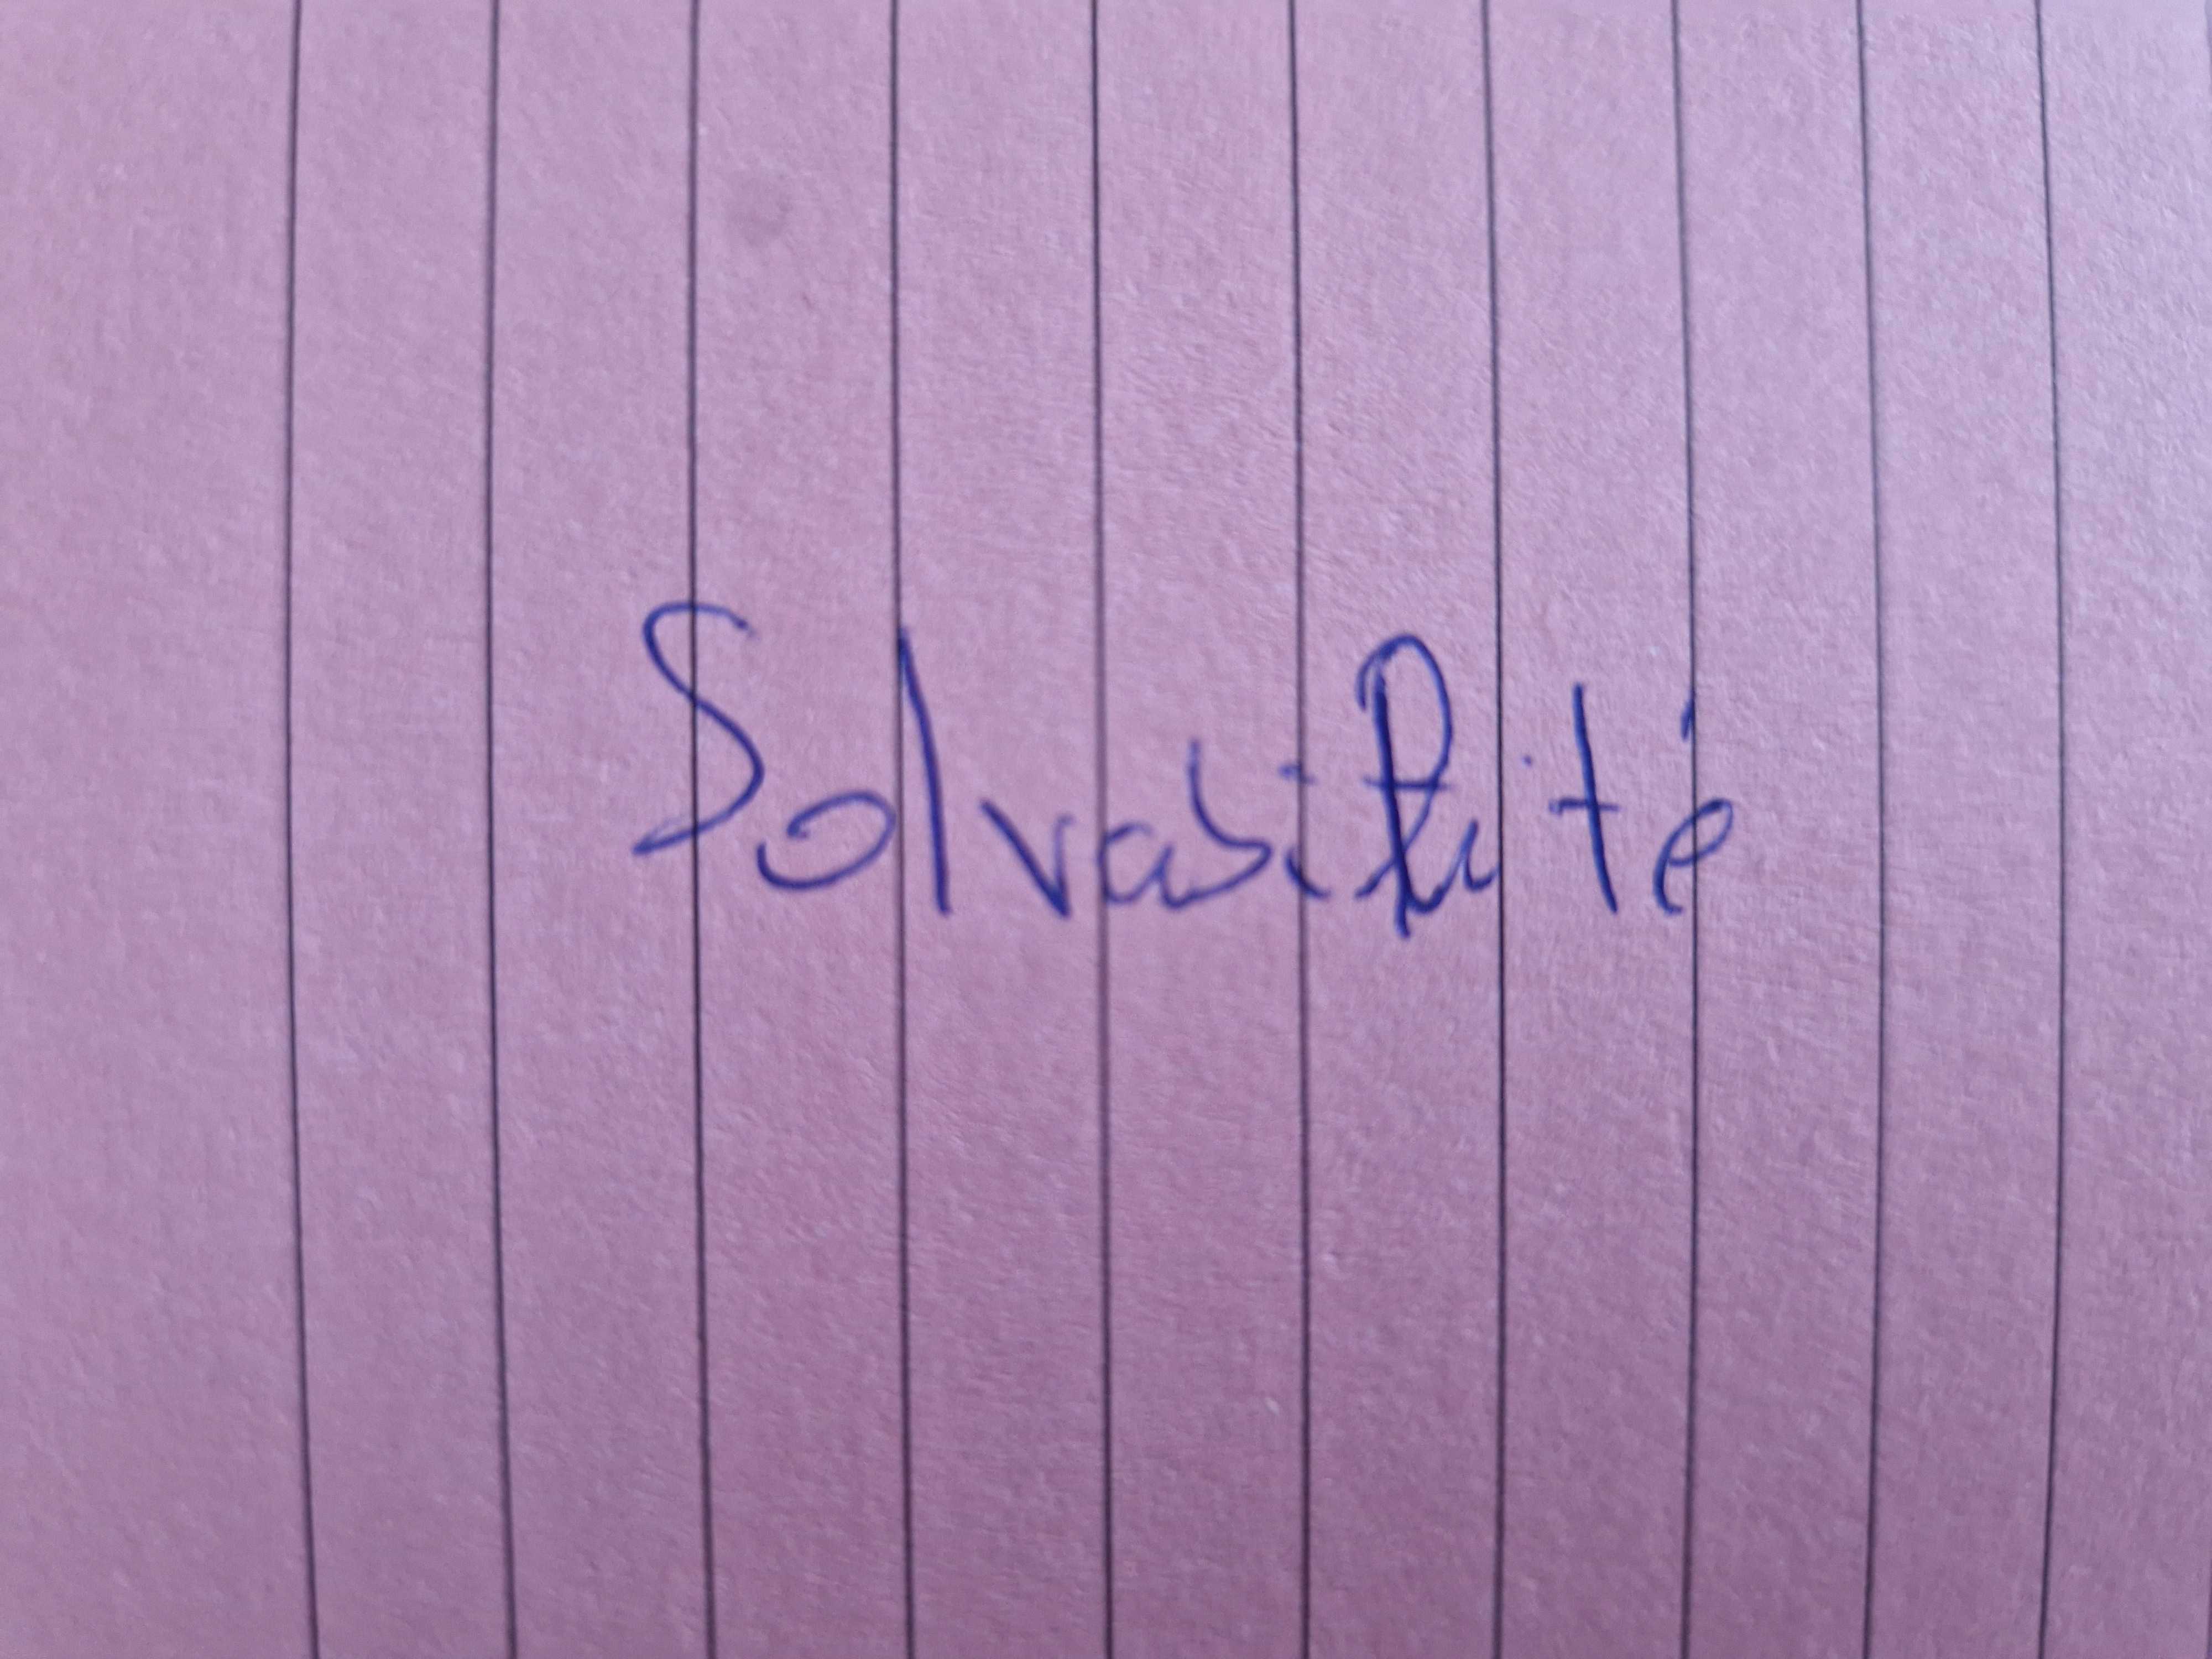 Solvabilité